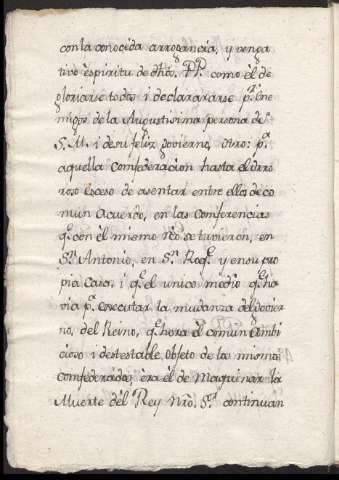 con la conocida arrogancia, y venga
tivo espiritu de dhã. PP. como él de
gloriarse todos i declararse pr. Ene
migos de la Augustisima persona de
S. M. i de su feliz govierno, otro: pr.
aquella confederacion hasta el
exceso de asentar entre ellos de co
mun Acuerdo, en las Conferencias
q. con el mismo Reo se tuvieron, en
Sn. Antonio, en Sn. Roq. y en su pro
pia Casa, i q. el unico medio q. ha
via pa. executar la mudanza del govier
no, del Reyno, q. hera el comun Ambi
cioso i destestable, objeto de los mismos
confederados, èra èl de Maquinar la
Muerte dél Rey Nro. Sr. continuan